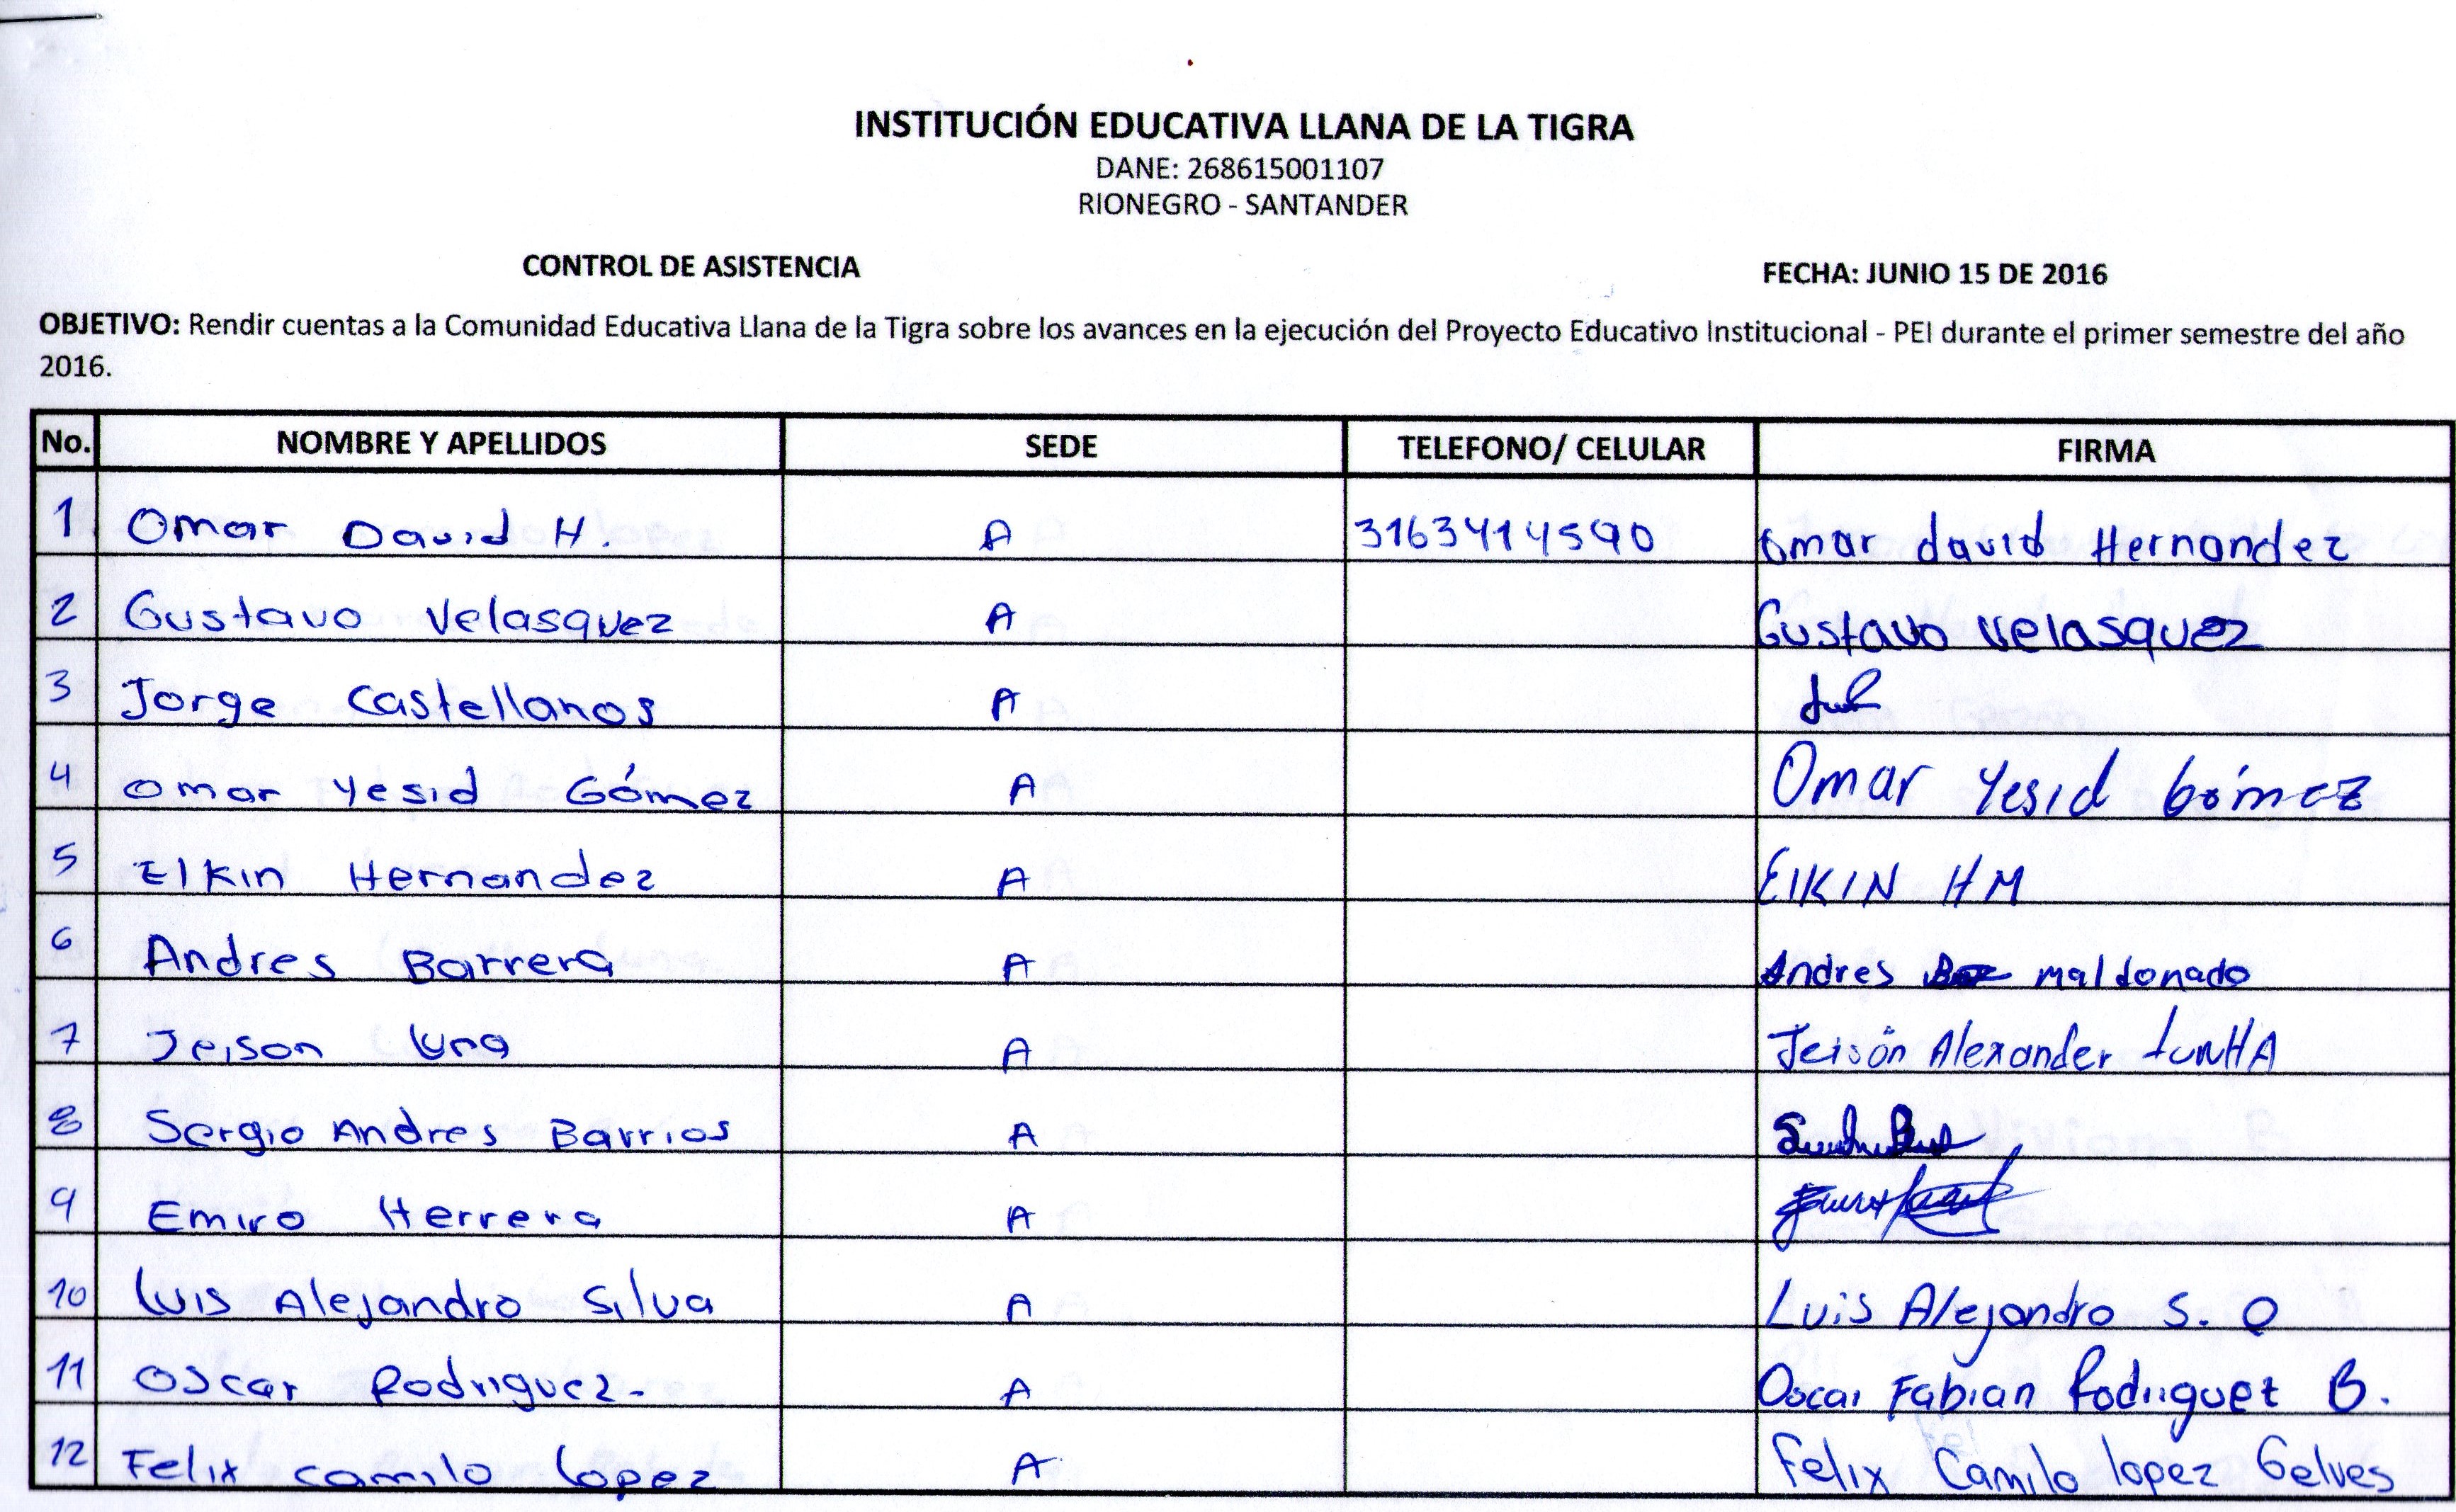 INSTITUCIÓN EDUCATIVA LLANA DE LA TIGRA
DANE: 268615001107
RIONEGRO - SANTANDER
CONTROL DE ASISTENCIA FECHA: JUNIO 15 DE 2016
OBJETIVO: Rendir cuentas a la Comunidad Educativa Llana de la Tigra sobre los avances en la ejecución del Proyecto Educativo Institucional - PEI durante el primer semestre del año
2016.
No. NOMBRE Y APELLIDOS SEDE TELEFONO/ CELULAR FIRMA
1 Omar David H. A 3163414590 Omar david Hernandez
2 Gustavo Velasquez A Gustavo Velasquez
3 Jorge Castellanos A
4 Omar Yesid Gómez A Omar Yesid Gómez
5 Elkin Hernandez A ElKIN HM
6 Andres Barrera A Andres maldonado
7 Jeison Luna A Jeisón Alexander
8 Sergio Andres Barrios A
9 Emiro Herrera A
10 Luis Alejandro Silva A Luis Alejandro S. Q
11 Oscar Rodriguez- A Oscar Fabian Rodriguez B.
12 Felix camilo Lopez A Felix Camilo lopez Gelves